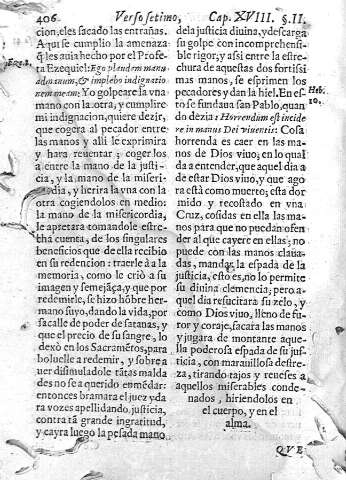 406 Verso setimo, Cap. XVIII. §. II.
cion, eles sacado las entrañas.
Aqui se cumplio la amenaza
q̃ les auia hecho por el Profe-
ta Ezequiel: Ego plendem manu
ad manum, & implebo indignatio-
nem meam: Yo golpeare la vna
mano con la otra, y cumplire
mi indignacion, quiere dezir,
que cogera al pecador entre
las manos y alli le exprimira
y hara reuentar; cogerlos
a entre la mano de la justi-
cia, y la mano de la miseri-
dia, y herira la vna con la
otra cogiendolos en medio:
la mano de la misericordia,
le apretara tomandole estre-
cha cuenta, de los singulares
beneficios que de ella recibio
en su redencion: traerle à la
memoria, como le criò a su
imagen y semejãça, y que por
redemirle, se hizo hõbre her-
mano suyo, dando la vida, por
sacalle de poder de satanas, y
que el precio de su sangre, lo
dexò en los Sacramẽtos, para
boluelle a redemir, y sobre a
uer disimuladole tãtas malda
des no se a querido enmẽdar:
entonces bramara el juez y da
ra vozes apellidando justicia,
contra tã grande ingratitud,
y cayra luego la pesada mano
Eze. 1.
de la justicia diuina, y descarga
su golpe con incomprehensi-
ble rigor; y assi entre la estre-
chura de aquestas dos fortissi-
mas manos, se esprimen los
pecadores y dan la hiel. En es-
to se fundaua san Pablo, quan
do dezia: Horrendum est incide
re in manus Dei viuentis: Cosa
horrenda es caer en las ma-
nos de Dios viuo; en lo qual
da a entender, que aquel dia a
de estar Dios viuo, y que ago
ra està como muerto; esta dor
mido y recostado en vna
Cruz, cosidas en ella las ma-
nos para que no puedan ofen
der al que cayere en ellas; no
puede con las manos claua-
das, mandar la espada de la
justicia, esto es, no lo permite
su diuina clemencia; pero a-
quel dia resucitara su zelo, y
como Dios viuo, lleno de fu-
ror y coraje, sacara las manos
y jugara de montante aque-
lla poderosa espada de su jus-
ticia, con marauillosa destre-
za, tirando tajos y reueses a
aquellos miserables conde-
nados, hiriendolos en
el cuerpo, y en el
alma.
Heb.
10.
QVE